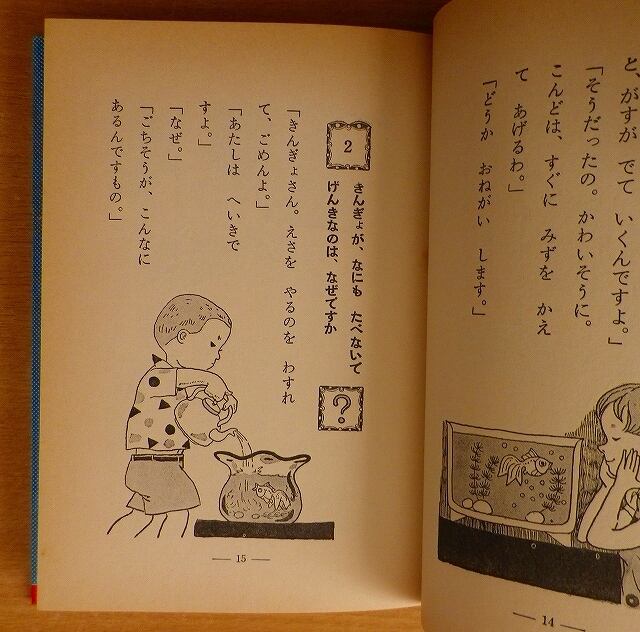 と、がすが でて いくんですよ。」
「そうだったの。かわいそうに。
こんどは、すぐに みずを かえ
て あげるわ。」
「どうか おねがい します。」
― 14 ―
2
きんぎょが、なにも たべないで
げんきなのは、なぜですか
?
「きんぎょさん。えさを やるのを わすれ
て、ごめんよ。」
「あたしは へいきで
すよ。」
「なぜ。」
「ごちそうが、こんなに
あるんですもの。」
― 15 ―